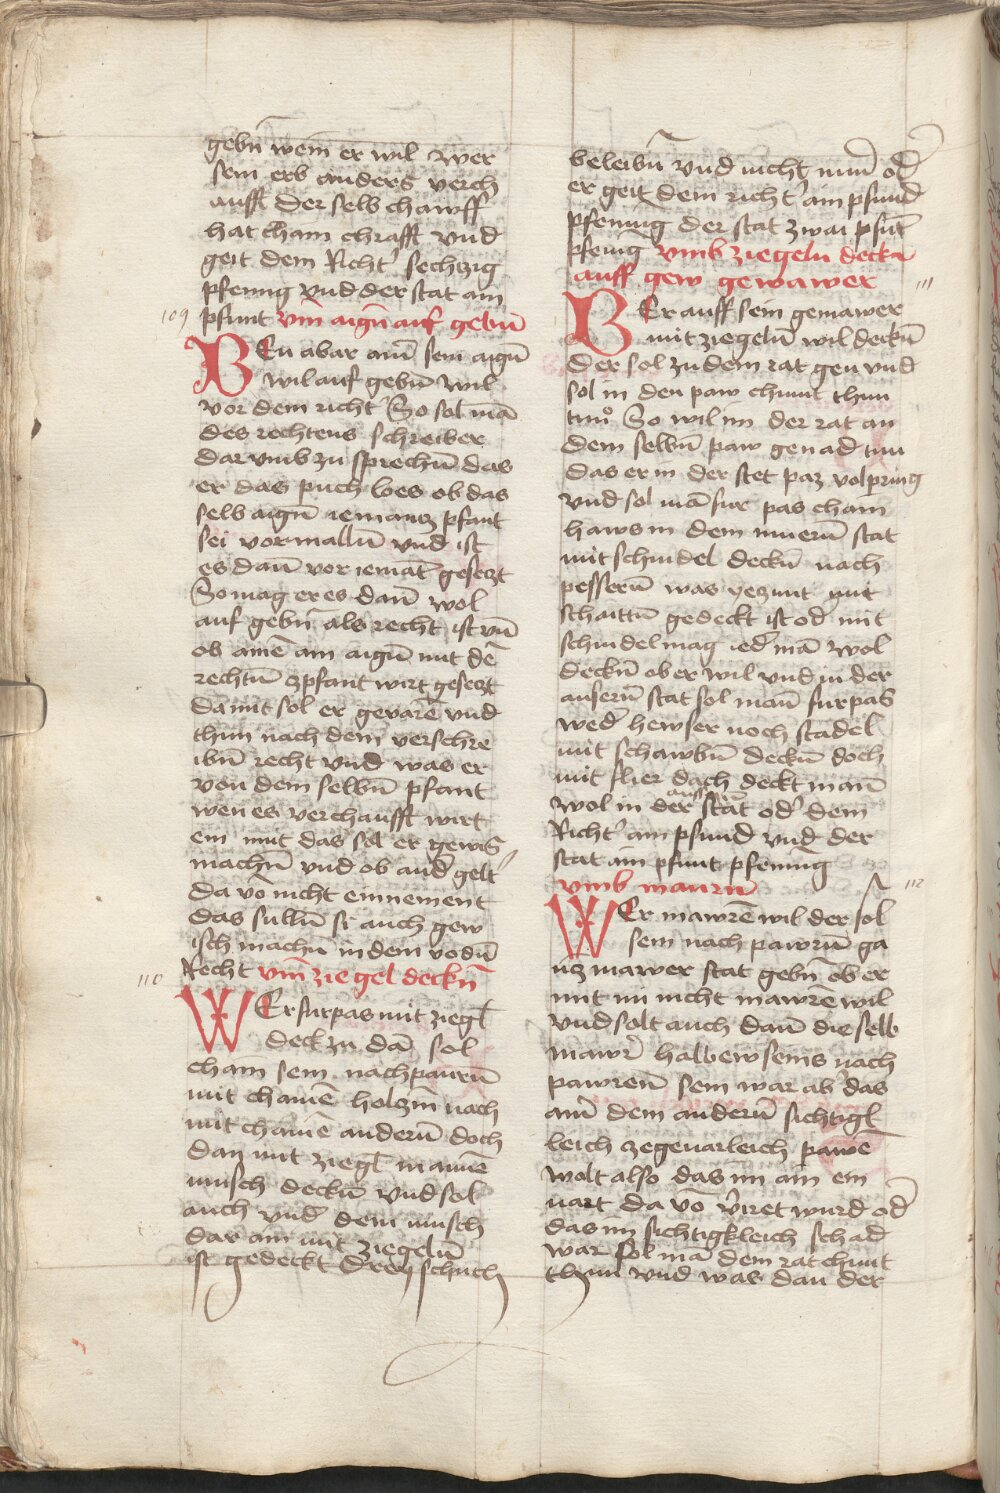 gebn̄ wem̄ er wil wer
sein erb anders verch
aufft der selb chawff
hat cham̄ chrafft vnd
geit dem Richt' sechtzig
pfenīg vnd der stat ain
109 pfunt vm̄ aign̄ auf gebn̄
WEn abar ain̄ sein aign̄
wil auf gebn̄ wil
vor dem richt' So sol mā
des rechtens schreiber
dar vmb zu sprechn̄ das
er das puch loes ob das
selb aign̄ iemantz pfant
sei vormalln̄ vnd ist
es dan̄ vor iemāt gesetzt
So mag er es dan̄ wol
auf gebn̄ als recht ist vn̄
ob ainē ain aign̄ mit dē
rechtn̄ czpfant wirt gesetzt
da mit sol er geuarē vnd
thun nach dem verschre
ibn̄ recht vnd was er
von dem selbn̄ pfant
wen es verchaufft wirt
ein nint das sol er gewis
machn̄ vnd ob and' gelt'
da vō nicht einnement
das sulln̄ si auch gew
isch machn̄ in dem vodn̄
Recht vm̄ ziegel deckn̄
110
WEr furpas mit ziegl
deck zu dā sol
cham̄ sein nachpaurn̄
mit chainē holczin nach
mit chainē andern̄ doch
dan mit ziegl in ainē
nusch deckn̄ vnd sol
auch vnd' dem nusch
dar ain mit ziegeln̄
ist gedeckt drey schuch
beleibn̄ vnd nicht mīn̄ od'
er geit dem richt' ain pfund
pfening der stat zwai pfūt
pfenīg vmb ziegeln deckn̄
auff gew gewawer 111
WEr auff sein gemawer
mit ziegeln̄ wil deckn̄
der sol zu dem rat gen vnd
sol in den paw chunt thun
tun̊ So wil im der rat an
dem selbn̄ paw genad tun
das er in der stet paz volpring
vnd sol mā fur pas cham̄
haws in dem innern̄ stat
mit schindel deckn̄ nach
pessern̄ was yezunt mit
schaittn̄ gedeckt ist od mit
schindel mag ied' mā wol
deckn̄ ob er wil vnd in der
ausern̄ stat sol man̄ furpas
wed' hewser noch stadel
mit schawbn̄ deckn̄ doch
mit flier dach deckt man̄
aussern̄
wol in der stat od' dem
Richt' ain pfund vnd der
stat ain pfunt pfening
vmb mawrn̄ 112
WEr mawrē wil der sol
sein nach pawrn̄ ga
ncz mawer stat gebn̄ ob er
mit im nicht mawrē wil
vnd solt auch dan̄ die selb
mawr' halbew seins nach
pawren̄ sein war ab das
ain' dem andern̄ sichtigl
leich czegeuarleich pawē
wolt also das im ain ein
uart da vō v'iret wurd od'
das im sichtigkleich schad
war sol mā dem rat chunt
thun vnd was dan der